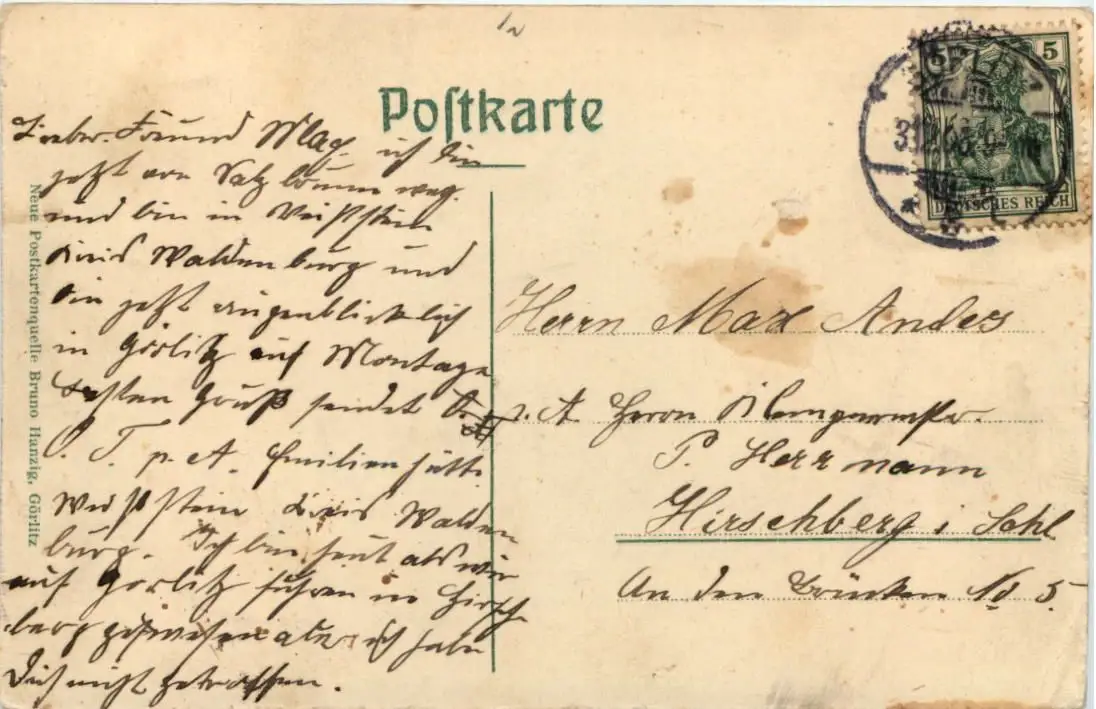 Postkarte
5 5
DEUTSCHES REICH
Lieber Freund Max. ich bin
jetzt von Salzbrunn weg
und bin in Weißstein
Kreis Waldenburg und
bin jetzt augenblicklich
in Görlitz auf Montage
Besten Gruß sendet
P. T. p. A. Emilienhütte
Weißstein Kreis Walden
burg. Ich bin heut als wir
auf Görlitz fuhren in Hirsch
berg gewesen aber ich habe
Dich nicht getroffen.
Herrn Max Anders
z. A. Herrn Klempnermstr.
P. Herrmann
Hirschberg i Schl
An den Brücken No 5
Neue Postkartenquelle Bruno Hanzig, Görlitz